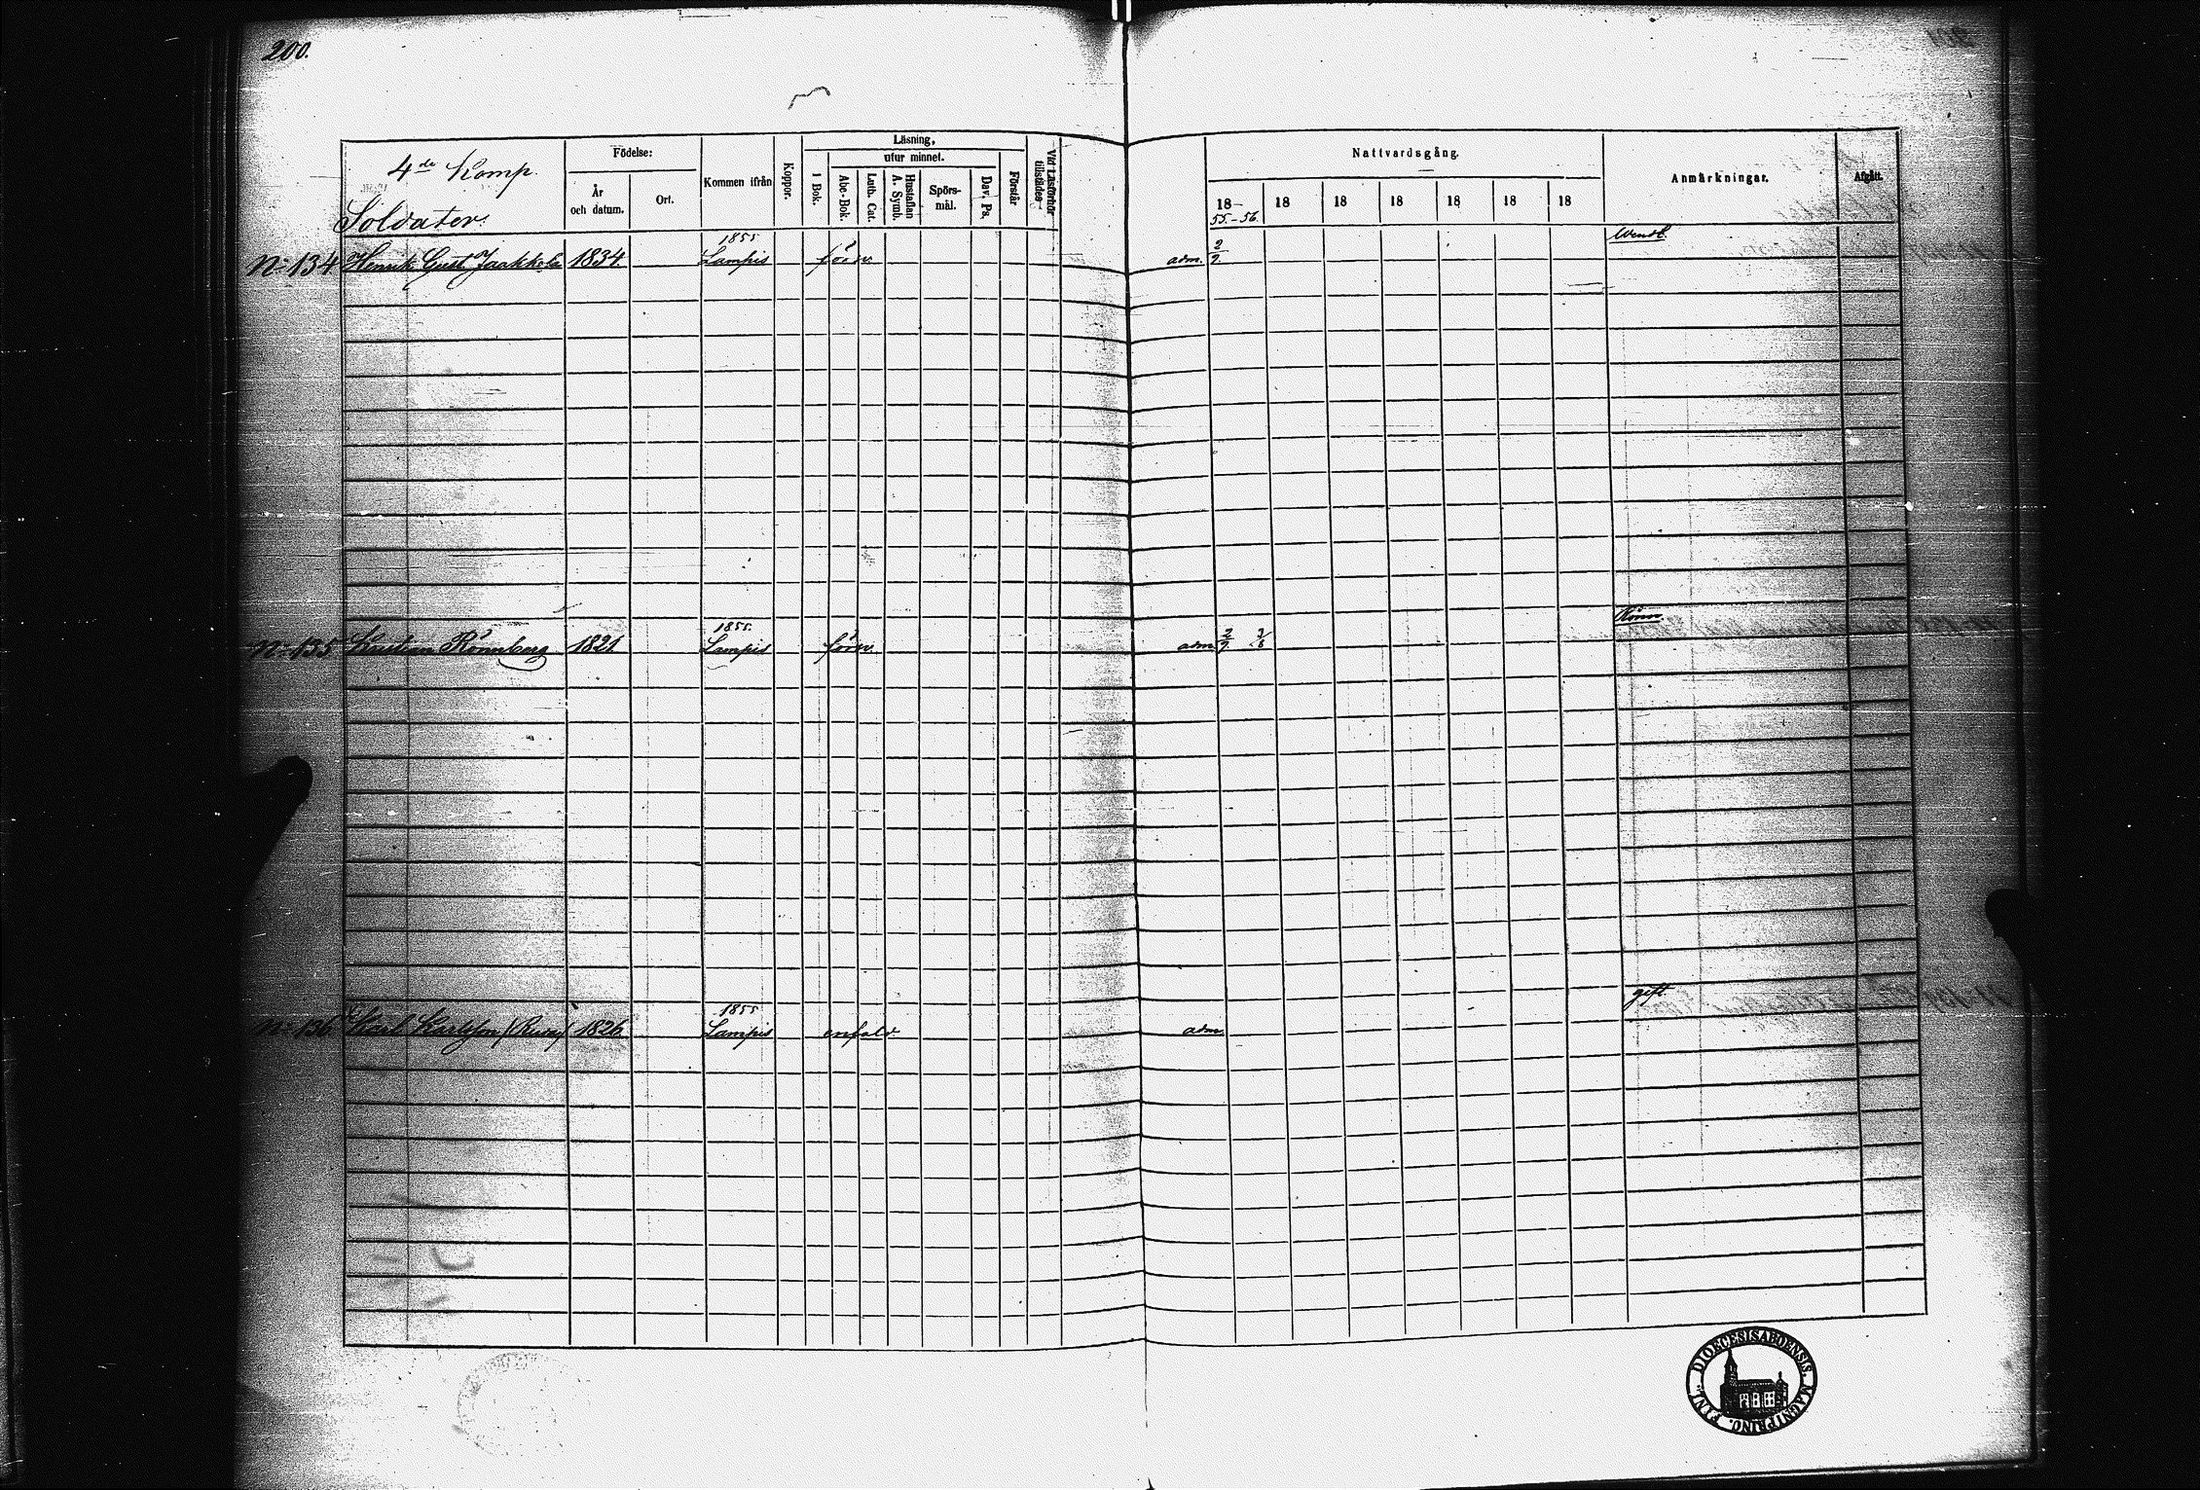 200.
Läsning,
4de Komp.
Födelse:
utur minnet.
Nattvardsgång.
Kommen ifrån
Koppor.
I Bok.
Abc-Bok.
Luth. Cat.
Hustaflan A. Symb.
Spörs-
mål.
Dav. Ps.
Förstår
Vid Läsförhör tillstädes
Anmärkningar.
Afgått.
År
och datum.
Ort.
Soldater.
18 18 18 18 18 18 18
55.-56.
1855
No 134 Henrik Gust. Jaakkola 1834 Lampis försv. adm. 2/9.
1855.
Rönn.
No 135 Kristian Rönnberg 1821 Lampis försv. adm. 2/9.
1855
gift
No 136 Karl Karlsson 1826 Lampis enfald. adm.
DIOECESIS ABOENSIS. MAGNI PRINC. FINL.